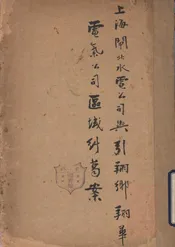 上海閘北水電公司與引翔鄉翔華
電氣公司區域糾葛案